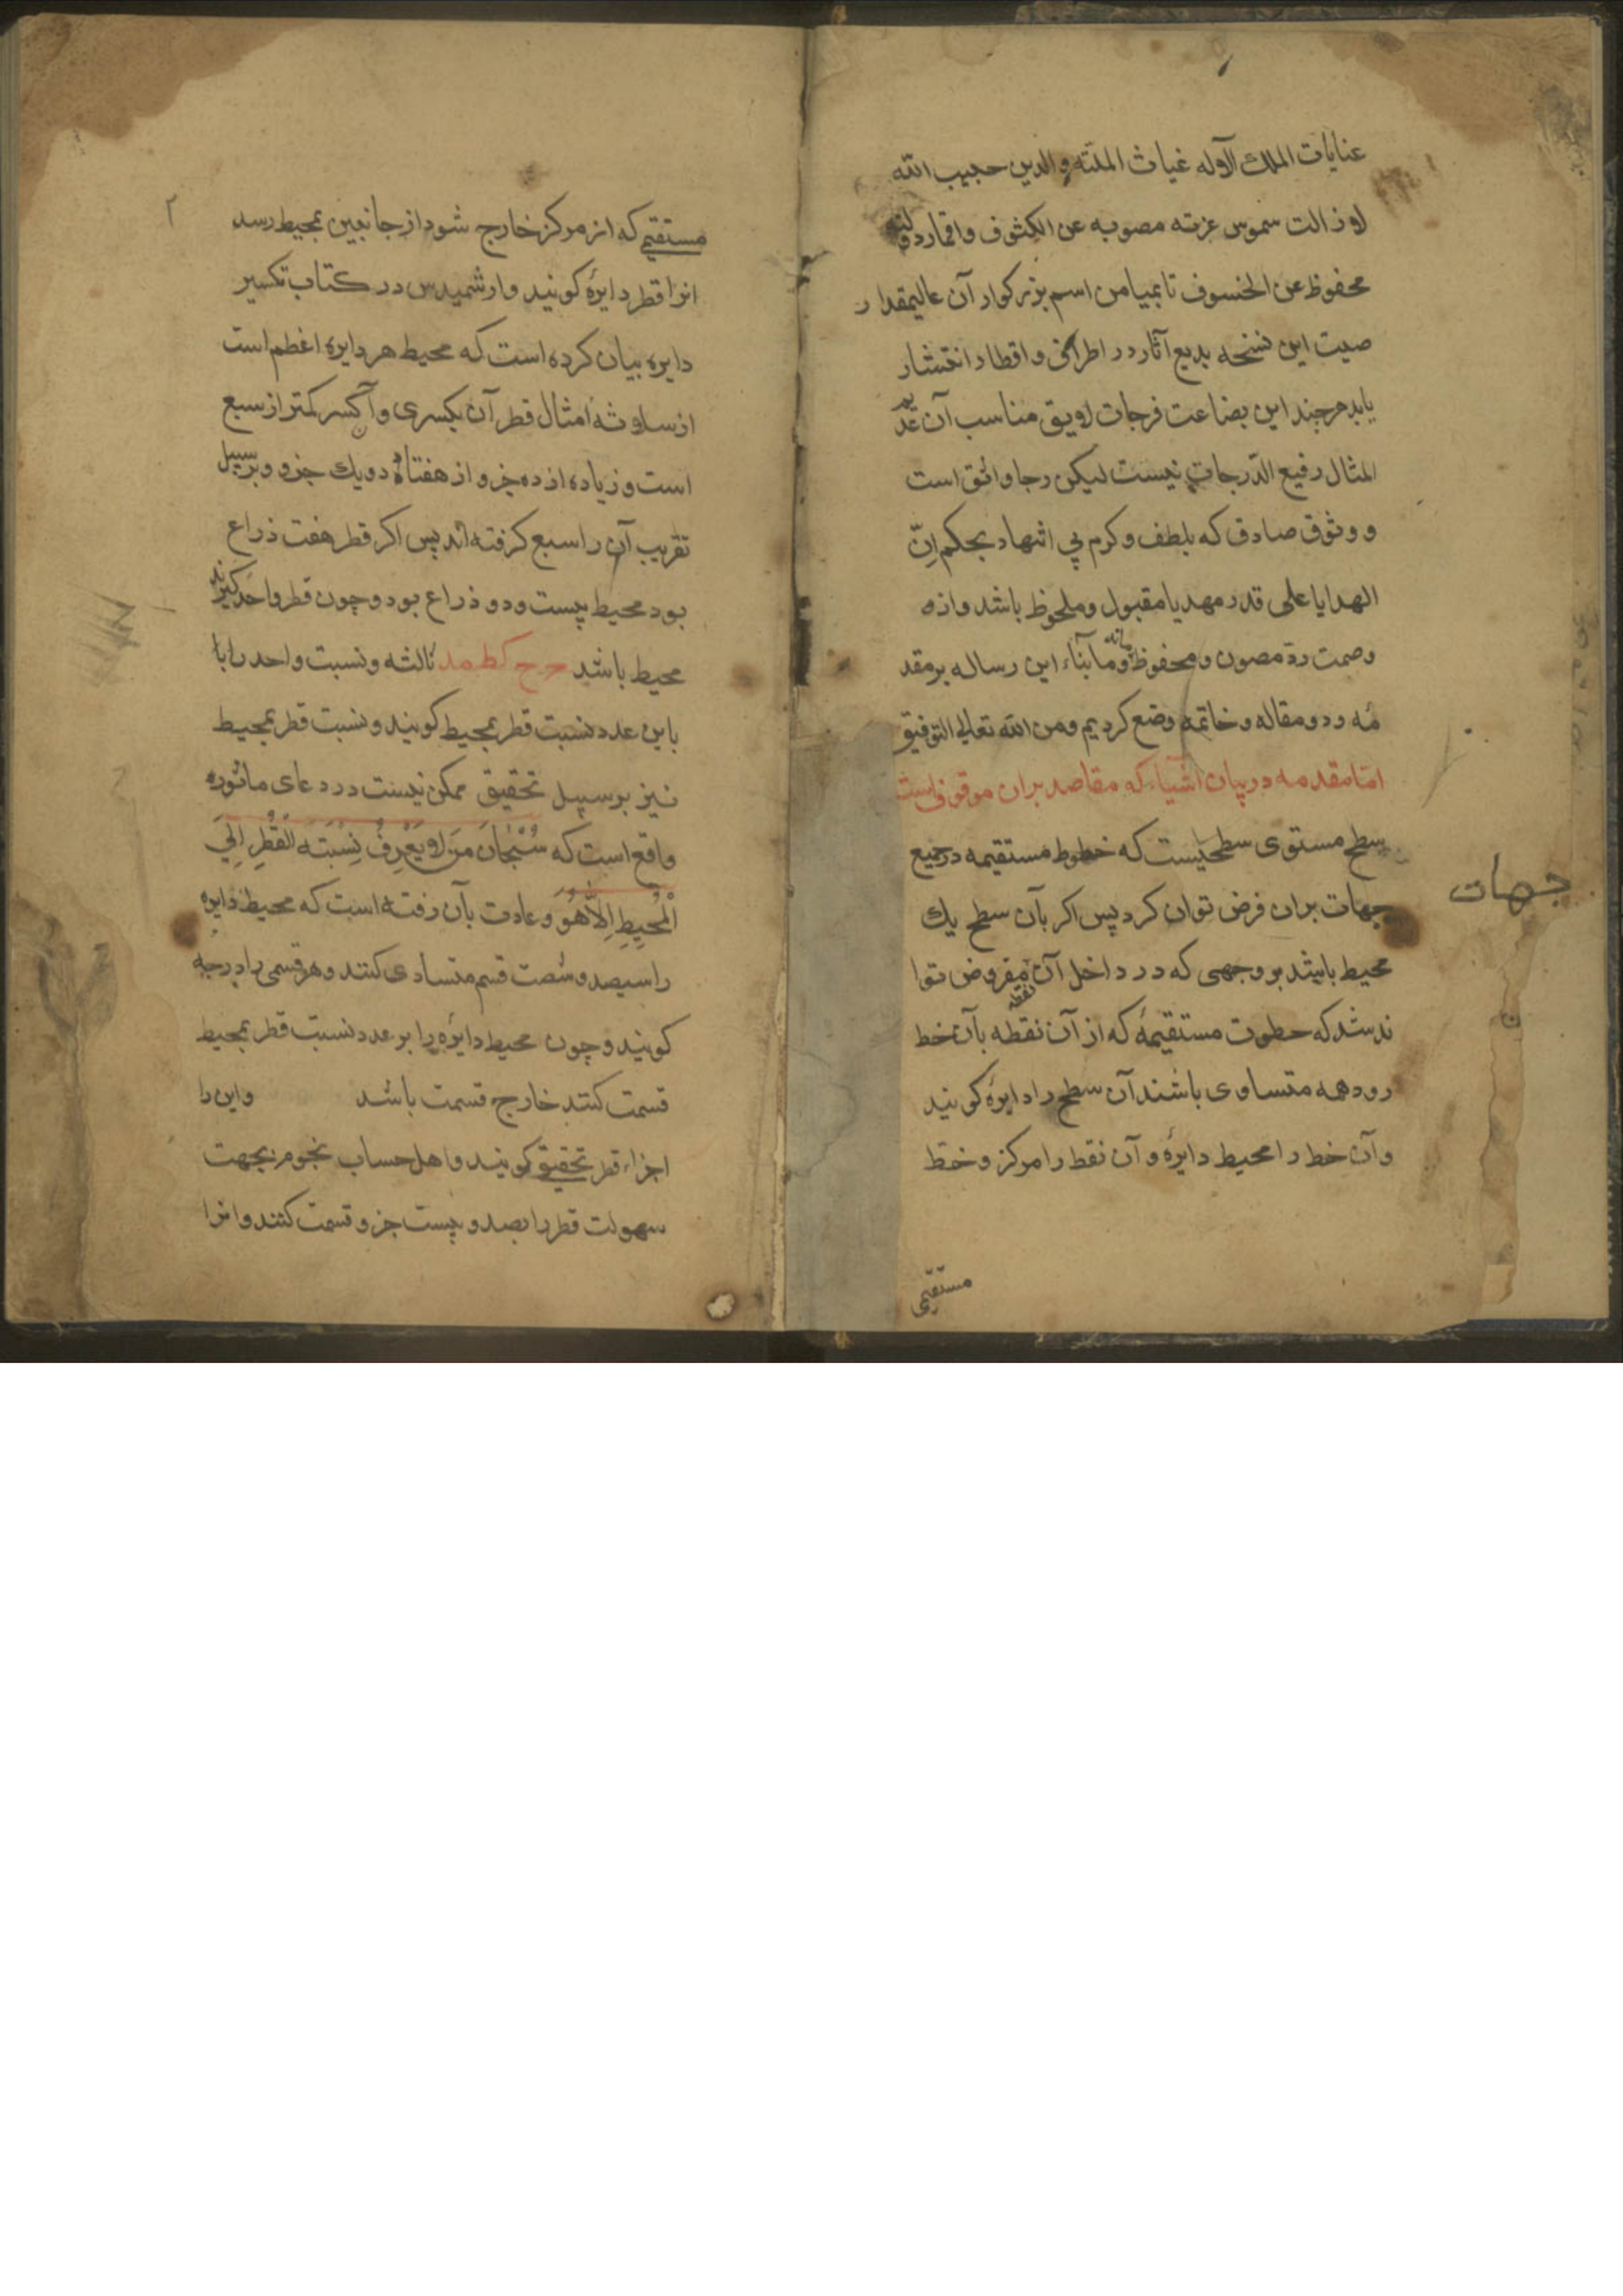 عنایات الملك الآله غیاث الملته والدین حبیب الله
لا زالت شموس عزته مصوبه عن الکثوف واقمار دولته
محفوظ عن الخسوف تا بمیامن اسم بزرکوار آن عالیمقدار
صیت این نسخه بدیع آثار در اطراف و اقطار انتشار
یابد هرچند این بضاعت فرجات لایق مناسب آن عدیم
المثال رفیع الدّرجات نیست لیکن رجا واثق است
و وثوق صادق که بلطف وکرم بی اشهاد بحکم اِنّ
الهدایا علی قدر مهدیها مقبول وملحوظ باشد و از
وصمت ردّ مصون و محفوظ ماند وما بناء این رساله بر مقد
مه و دو مقاله و خاتمه وضع کردیم ومن الله تعالی التوفیق
امّا مقدمه در بیان اشیاء که مقاصد بران موقوف است
سطح مستوی سطحیست که خطوط مستقیمه در جمیع
جهات بران فرض توان کرد پس اکر بآن سطح یك
جهات
محیط باشد بر وجهی که در داخل آن نقطه مفروض توا
ند شد که خطوط مستقیمهٔ که از آن نقطه بآن خط
رود همه متساوی باشند آن سطح را دایرهٔ کویند
وآن خط را محیط دایرهٔ و آن نقط را مرکز و خط
مستقیمی
۲
مستقیمی که از مرکز خارج شود از جانبین بمحیط رسد
انرا قطر دایرهٔ کویند وارشمیدس در کتاب تکسیر
دایره بیان کرده است که محیط هر دایره اعظم است
از سلاثهٔ امثال قطر آن بکسری وآن کسر کمتر از سبع
است و زیاده از ده جزو از هفتاد و یك جزو و بر سبیل
تقریب آن را سبع کرفته اند پس اکر قطر هفت ذراع
بود محیط بیست و دو ذراع بود و چون قطر واحد کیرند
محیط باشد ح ح کط مد ثالثه و نسبت واحد را با
باین عدد نسبت قطر بمحیط کویند و نسبت قطر بمحیط
نیز بر سبیل تحقیق ممکن نیست در دعای ماثوره
واقع است که سُبْحَانَ مَنْ لا یَعْرِفُ نِسْبَتَه الْقُطْرِ اِلَی
الْمُحِیطِ اِلاَّ هُوَ و عادت بآن رفته است که محیط دایره
را سیصد و شصت قسم متساوی کنند و هر قسمی را درجه
کویند و چون محیط دایرهٔ را بر عدد نسبت قطر بمحیط
قسمت کنند خارج قسمت باشد واین را
اجزاء قطر تحقیق کویند و اهل حساب نجوم بجهت
سهولت قطر را بصد و بیست جزو قسمت کنند وانرا